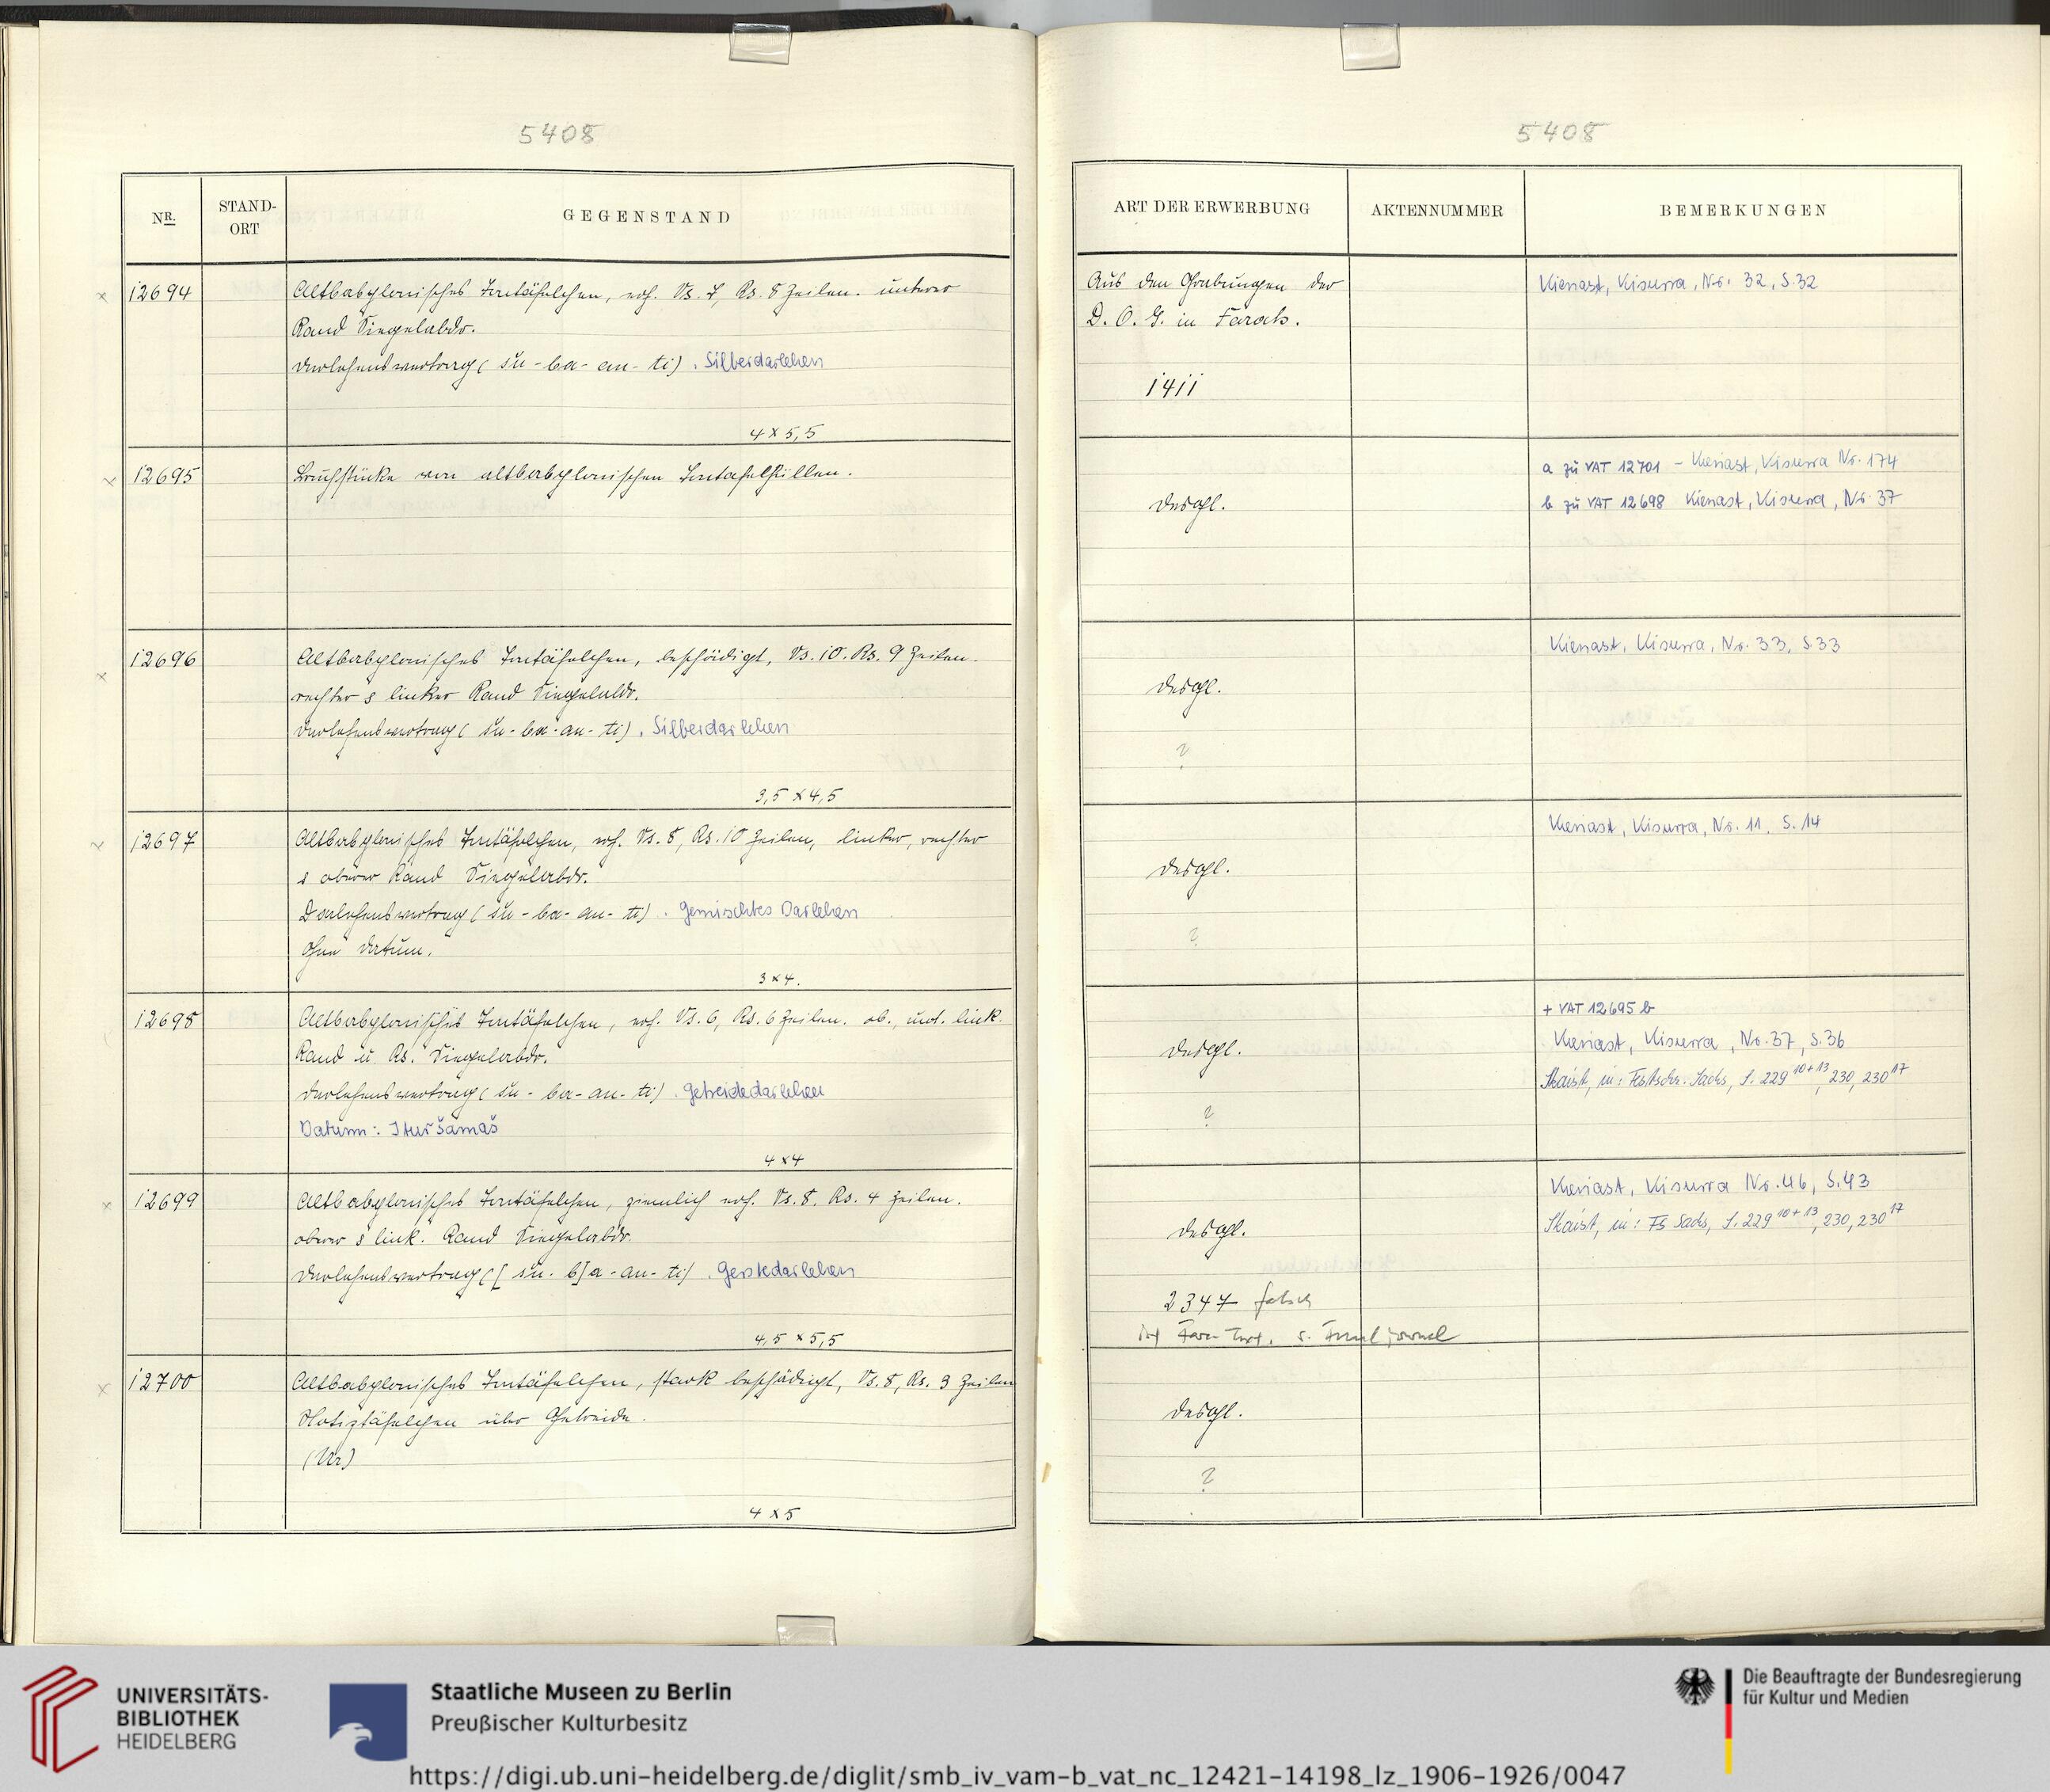 5408
NR.
STAND-
ORT
GEGENSTAND
12694
Altbabylonisches Tontäfelchen, erh. Vs. 7, Rs. 8 Zeilen. unterer
Rand Siegelabdr.
Darlehensvertrag ( šu - ba - an - ti) . Silberdarlehen
4 x 5,5
12695
Bruchstücke von altbabylonischen Tontafelhüllen.
12696
Altbabylonisches Tontäfelchen, beschädigt, Vs. 10. Rs. 9 Zeilen.
rechter & linker Rand Siegelabdr.
Darlehensvertrag ( šu - ba - an - ti) . Silberdarlehen
3,5 x 4,5
12697
Altbabylonisches Tontäfelchen, erh. Vs. 8, Rs. 10 Zeilen, linker, rechter
& oberer Rand Siegelabdr.
Darlehensvertrag ( šu - ba - an - ti) . Gemischtes Darlehen
Ohne Datum.
3 x 4.
12698
Altbabylonisches Tontäfelchen, erh. Vs. 6, Rs. 6 Zeilen. ob., unt. link.
Rand u. Rs. Siegelabdr.
Darlehensvertrag ( šu - ba - an - ti) . Getreidedarlehen
Datum : Itur Šamaš
4 x 4
12699
Altbabylonisches Tontäfelchen, ziemlich erh. Vs. 8. Rs. 4 Zeilen.
oberer & link. Rand Siegelabdr.
Darlehensvertrag ( [ šu - b] a - an - ti) . Gerstedarlehen
4,5 x 5,5
12700
Altbabylonisches Tontäfelchen, stark beschädigt, Vs. 8, Rs. 3 Zeilen
Notiztäfelchen über Getreide.
(Ur)
4 x 5
5408
ART DER ERWERBUNG
AKTENNUMMER
BEMERKUNGEN
Aus den Grabungen der
D. O. G. in Farah.
1411
Kienast, Kisurra, Nr. 32, S. 32
desgl.
a zu VAT 12701 - Kienast, Kisurra Nr. 174
b zu VAT 12698 Kienast, Kisurra, Nr. 37
desgl.
?
Kienast, Kisurra, Nr. 33, S. 33
desgl.
?
Kienast, Kisurra, Nr. 11, S. 14
desgl.
?
+ VAT 12695 b
Kienast, Kisurra, Nr. 37, S. 36
Skaist, in: Festschr. Sachs, S. 229 10+13, 230, 230 17
desgl.
2347 falsch
Fara s.
Kienast, Kisurra Nr. 46, S. 43
Skaist, in: FS Sachs, S. 229 10+13, 230, 230 17
desgl.
?
UNIVERSITÄTS-
BIBLIOTHEK
HEIDELBERG
Staatliche Museen zu Berlin
Preußischer Kulturbesitz
Die Beauftragte der Bundesregierung
für Kultur und Medien
https://digi.ub.uni-heidelberg.de/diglit/smb_iv_vam-b_vat_nc_12421-14198_lz_1906-1926/0047